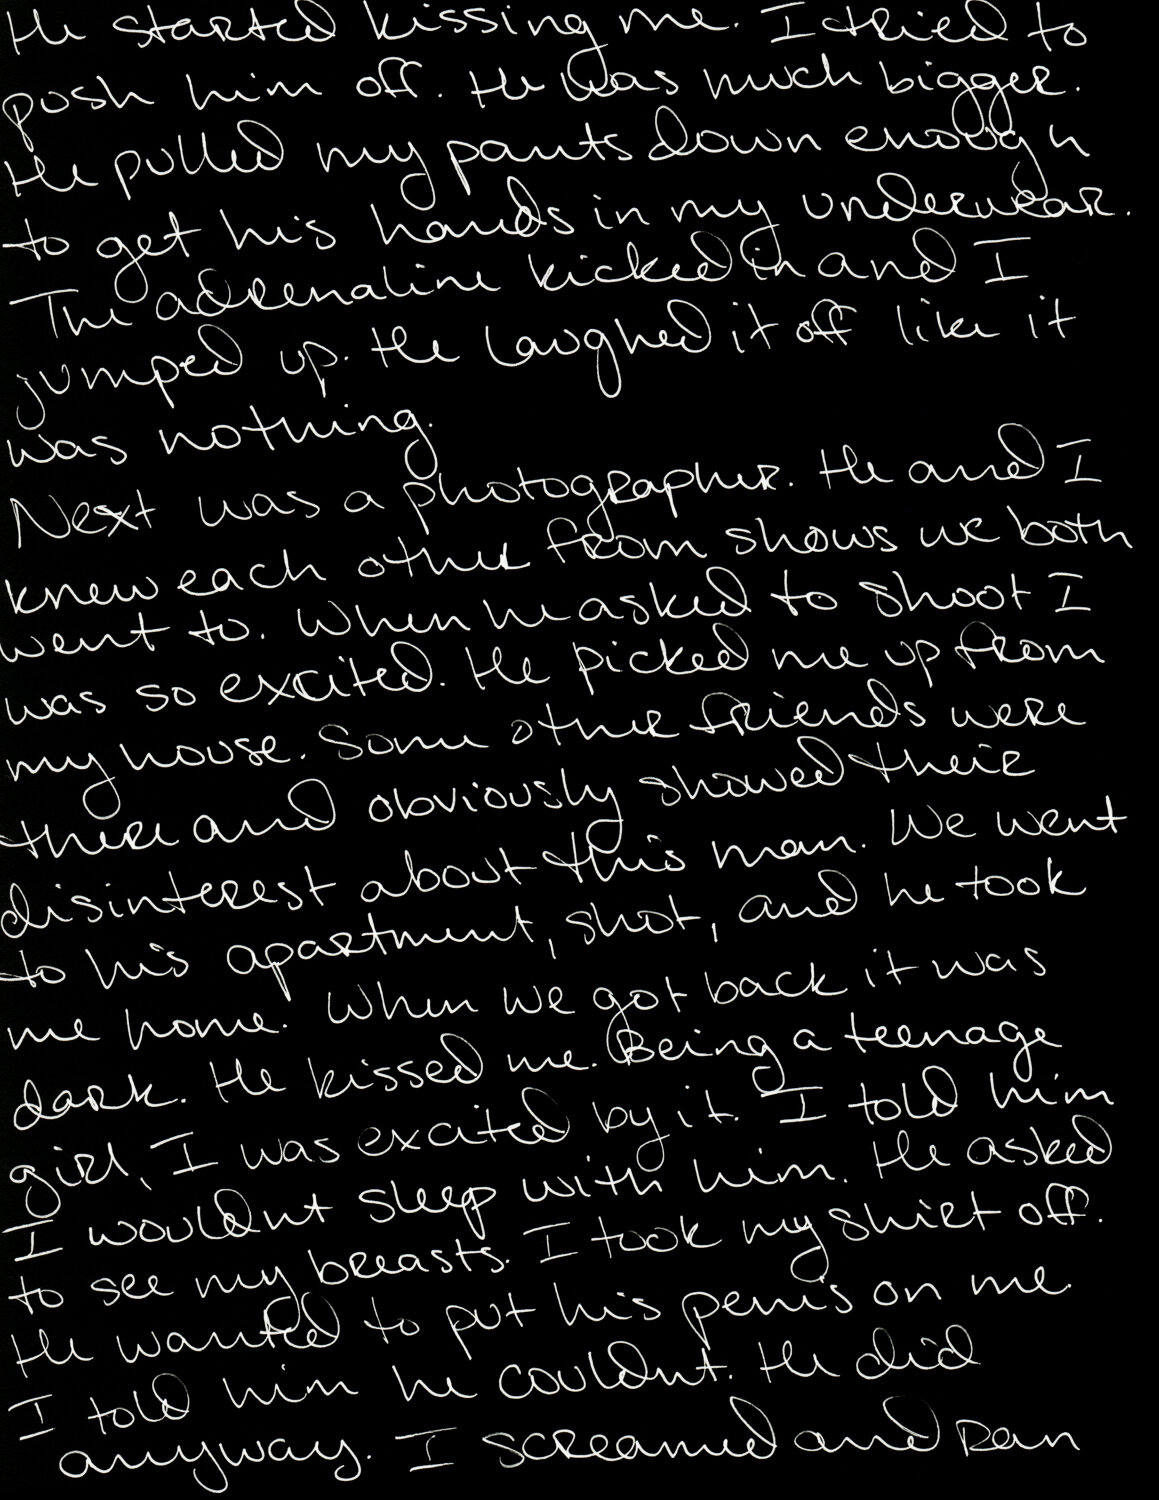 He started kissing me. I tried to
push him off. He was much bigger.
He pulled my pants down enough
to get his hands in my underwear.
The adrenaline kicked in and I
jumped up. He laughed it off like it
was nothing.
Next was a photographer. He and I
knew each other from shows we both
went to. When he asked to shoot I
was so excited. He picked me up from
my house. Some other friends were
there and obviously showed their
disinterest about this man. We went
to his apartment, shot, and he took
me home. When we got back it was
dark. He kissed me. Being a teenage
girl, I was excited by it. I told him
I wouldnt sleep with him. He asked
to see my breasts. I took my shirt off.
He wanted to put his penis on me.
I told him he couldnt. He did
anyway. I screamed and ran